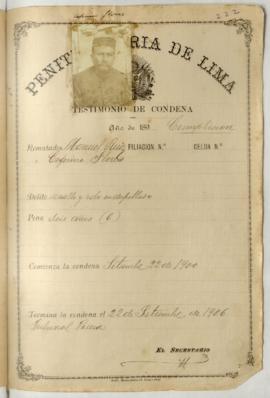 222
PENITENCIARIA DE LIMA
TESTIMONIO DE CONDENA
Año de 189 Cumplida
Rematado Manuel Ruiz FILIACION N.º CELDA N.º
Flores
Delito y robo
Pena seis años (6)
Comienza la condena Setiembre 22 de 1900
Termina la condena el 22 de Setiembre de 1906
Tribunal
EL SECRETARIO